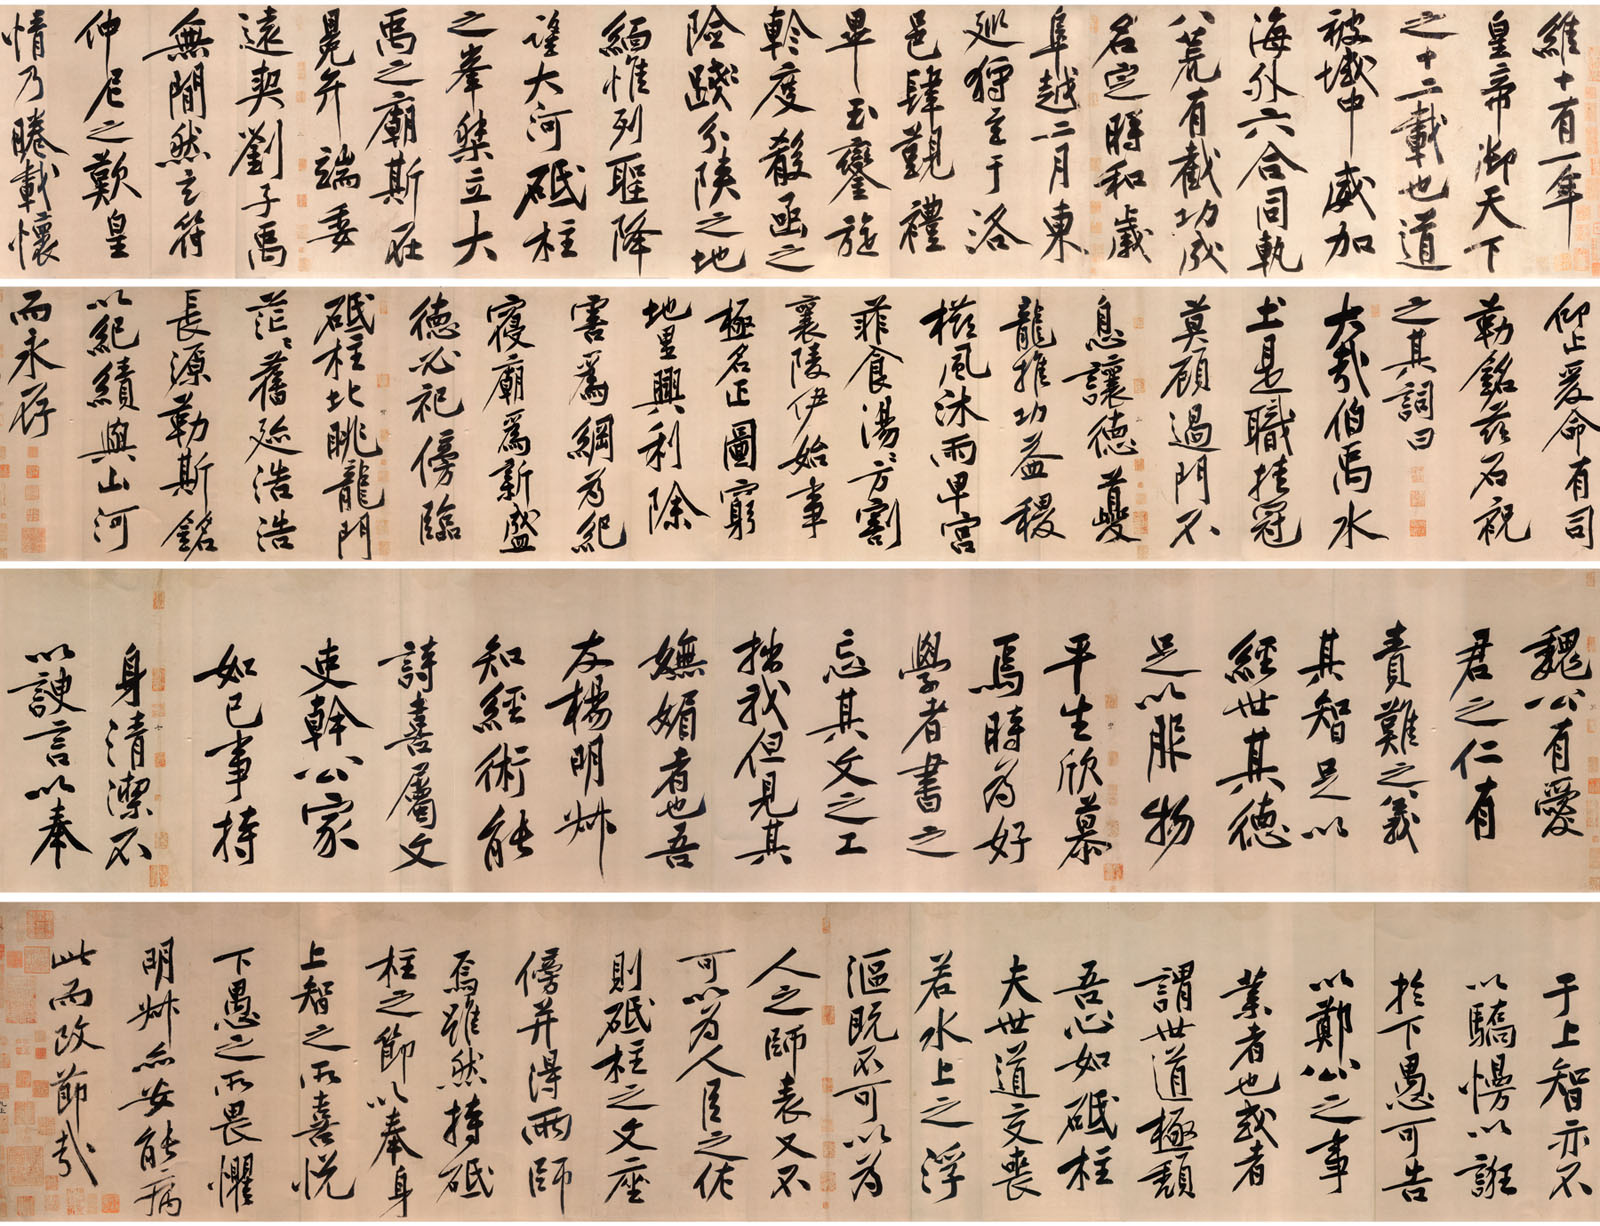 維十有一年
皇帝御天下
之十二載也道
被域中威加
海外六合同軌
八荒有截功成
名定時和歲
阜越二月東
巡狩至于洛
邑肆覲禮
畢玉鑾旋
軫度殽函之
險踐分陝之地
緬惟列聖降
望大河砥柱
之峯桀立大
禹之廟斯在
冕弁端委
遠契劉子禹
無間然玄符
仲尼之歎皇
情乃睠載懷
仰止爰命有司
勒銘茲石祝
之其詞曰
大哉伯禹水
土是職挂冠
莫顧過門不
息讓德夔
龍推功益稷
櫛風沐雨卑宮
菲食湯湯方割
襄陵伊始事
極名正圖窮
地里興利除
害爲綱爲紀
寢廟爲新盛
德必祀傍臨
砥柱北眺龍門
茫茫舊迹浩浩
長源勒斯銘
以紀績與山河
而永存
魏公有愛
君之仁有
責難之義
其智足以
經世其德
足以服物
平生欣慕
焉時為好
學者書之
忘其文之工
拙我但見其
嫵媚者也吾
友楊明叔
知經術能
詩喜屬文
吏幹公家
如己事持
身清潔不
以諛言以奉
于上智亦不
以驕慢以誑
於下愚可告
以鄭公之事
業者也或者
謂世道極頹
吾心如砥柱
夫世道交喪
若水上之浮
漚既不可以為
人之師表又不
可以為人臣之佐
則砥柱之文座
傍并得兩師
焉雖然持砥
柱之節以奉身
上智之所喜悅
下愚之所畏懼
明叔亦安能病
此而改節哉